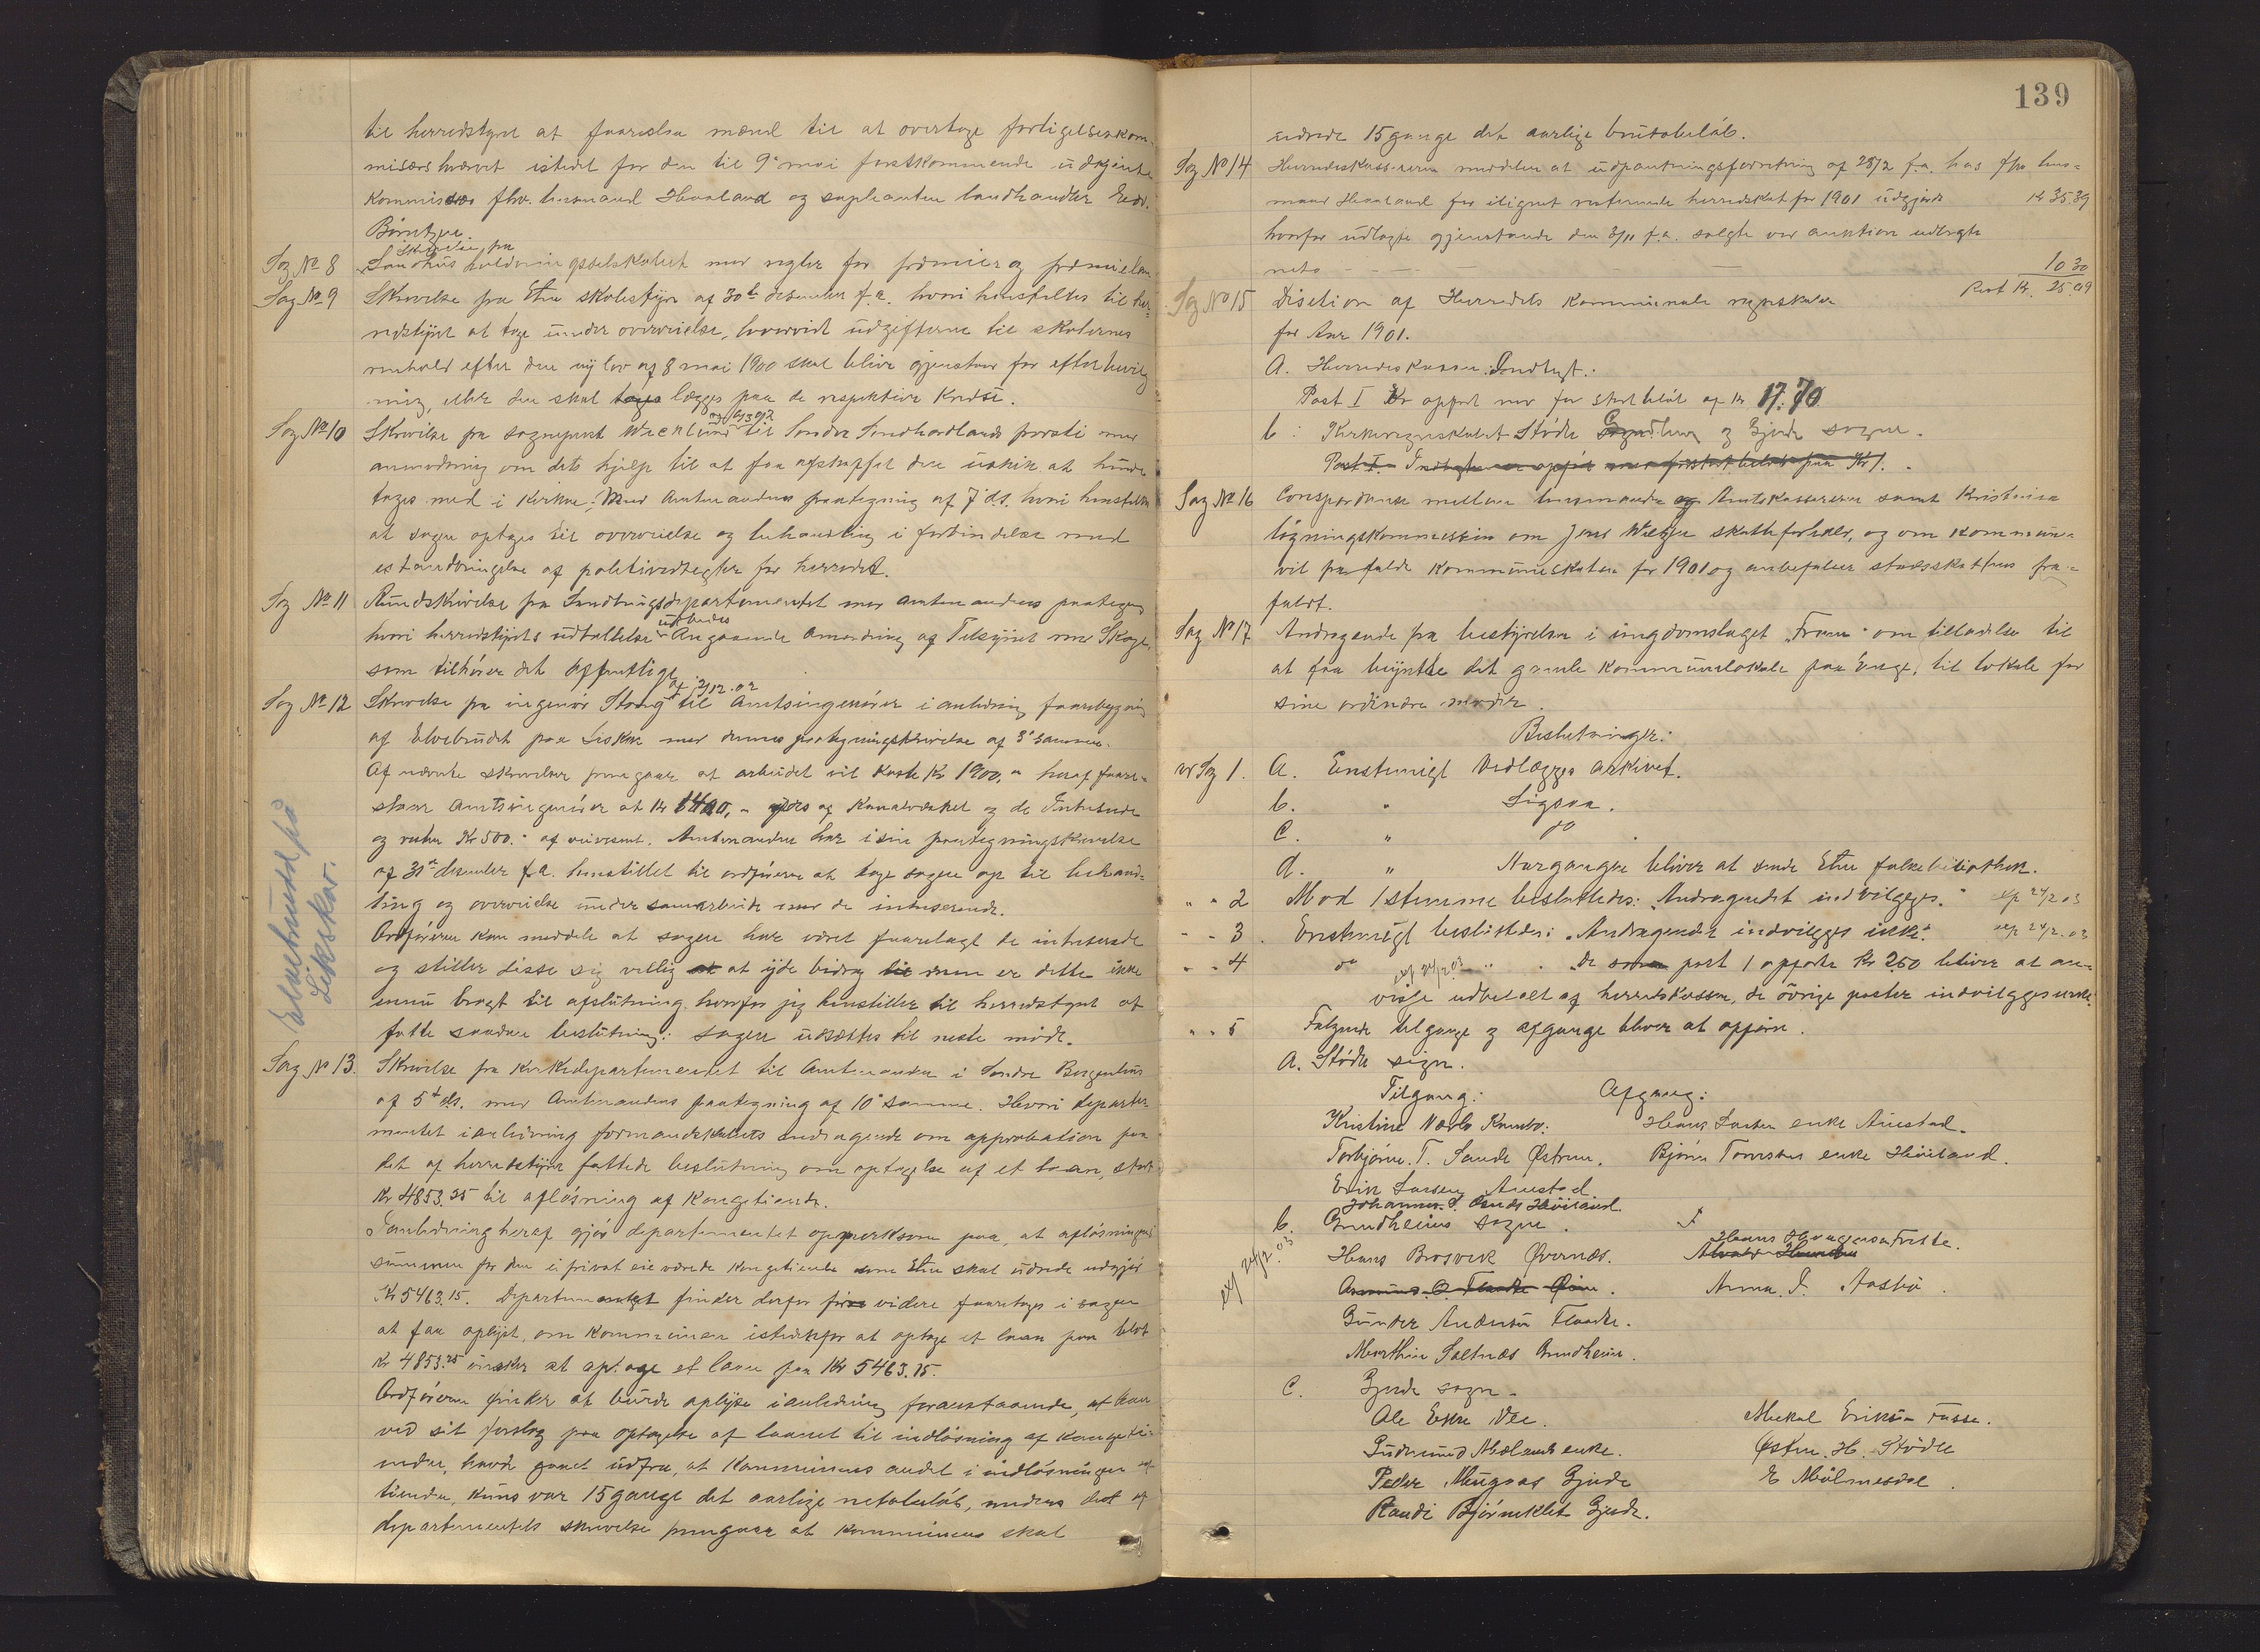 til herredstyret at foreslaa mænd til at overtage forligelseskom-
misærhvervet istedet for den til 9de mai førstkommende udgjænte
Kommissær fhv. lensmand Haaland og supleanten landhandler Edv.
Børretzen.
Sag No 8 Skrivelse fra Søndhus holdningsselskabet med regler for præmier og præmielaan
Sag No 9 Skrivelse fra Etne skolestyre af 30te desember f.a. hvori henstilles til her-
redstyret at tage under overveielse, hvorvidt udgifterne til skolernes
renhold efter den ny lov af 8 mai 1900 skal blive gjenstand for efterbevilg
ning, eller den skal tages lægges paa de respektive Kredse.
Sag No 10 Skrivelse fra sogneprest Wæhlund til Søndre Søndhordlands provsti med
anmodning om dets hjelp til at faa afskaffet den uskik at hunde
tages med i Kirken. Med Amtmandens paategning af 7de ds. hvori henstilles
at sagen optages til overveielse og behandling i forbindelse med
istandbringelse af politivedtegter for herredet.
Sag No 11 Rundskrivelse fra Landbrugsdepartementet med amtmandens paategning
hvori herredstyrets udtallelse udbedes Angaaende Anordning af Tilsynet med Skoge,
som tilhører det offentlige.
Sag No 12 Skrivelse fra ingeniør Stang af 3/12.02 til Amtsingeniøren i anledning forebygning
af Elvebrudet paa Leskar med dennes paategningskrivelse af 3de samme.
Af nævnte skrivelser fremgaar at arbeidet vil Koste Kr 1900,- heraf fore-
slaar amtsingeniøren at Kr 1400,- ydes af Kanalvæsket og de Intreserede
og resten Kr 500.- af veivesent. Amtmanden har i sin paategningsskrivelse
af 31te desember f.a. henstillet til ordføreren at tage sagen op til behand-
ling og overveielse under samarbeide med de intreserede.
Ordføreren kan meddele at sagen har været forelagt de intreserede
og stiller disse sig villig at at yde bidrag til men er dette ikke
ennu bragt til afslutning hvorfor jeg henstiller til herredstyret at
fatte saadan beslutning: sagen udsættes til neste møde.
Elvebrudd på
Leksskar.
Sag No 13. Skrivelse fra Kirkedepartementet til Amtmanden i Søndre Bergenhus
af 5te ds. med Amtmandens paategning af 10de samme. Hvori departe-
mentet i anledning formandskabets andragende om approbation paa
det af herredstyret fattede beslutning om optagelse af et laan, stort
Kr 4853.25 til afløsning af Kongetiende.
I anledning heraf gjør departementet opmerksom paa, at afløsnings-
summen for den i privat eie værede kongetiende som Etne skal udrede udgjør
Kr 5463.15. Departementet finder derfor før videre foretages i sagen
at faa oplyst, om Kommunen istedetfor at optage et laan paa blot
Kr 4853.25 ønsker at optage et laan paa Kr 5463.15.
Ordføreren ønsker at burde oplyse i anledning foranstaaende, at han
ved sit forslag paa optagelse af laanet til indløsning af Kongeti-
enden, havde gaaet udfra, at Kommunens andel i indløsningen af
tienden, kuns var 15 gange det aarlige netobeløb, medens det af
departementets skrivelse fremgaar at kommunens skal
139
udrede 15 gange det aarlige brutobeløb.
Sag No 14 Herredskassereren meddeler at udpantningsforretning af 28/2 f.a. hos fhv. lens-
mand Haaland for ilignet resterende herredskat for 1901 udgjorde Kr 35.39
hvorfor udlagte gjenstande den 3/11 f.a. solgte ved auktion udbragte
neto - - - - 10 30
Rest Kr. 25.09
Sag No 15 Desision af Herredets Kommunale regnskaber
for Aar 1901.
A. Herredskassen: Indtægt.
Post I Er opført med for stort beløb af Kr 17.70
b: Kirkeregnskabet Støle Grindheim og Gjerde sogne.
Post I. Indtægten er opført med forstort beløb paa Kr 1.
Sag No 16 Conspondanse mellem lensmanden og Amtskassereren samt Kristiania
ligningskommission om Jens Wælgen skatteforholdes, og om kommunen
vil frafalde Kommuneskatten for 1901 og anbefaler stadsskattens fra-
fald.
Sag No 17 Andragende fra bestyrelsen i ungdomslaget "Fram" om tilladelse til
at faa benytte det gamle Kommunelokale paa Enge, til lokale for
sine ordinære møder.
Beslutninger:
vr Sag 1. A. Enstemigt Vedlægges Arkivet.
b. " Ligesaa.
C. " do
d. " Aargangen bliver at sende Etne folkebibliothek.
" " 2 Mod 1 stemme besluttedes: "Andragendet indvilges." exp 24/2 03
" " 3. Enstemigt beslutedes: "Andragendet indvilges ikke." exp 24/2.03
" " 4 do exp 24/2 03 " "De som post 1 opførte Kr 250 bliver at an-
vise udbetalt af herredskassen, de øvrige poster indvilges ikke.
" " 5 Følgende tilgange og afgange bliver at opføre.
A. Støle sogn.
Tilgang: Afgang:
Kristine Nærbø Kambo. Hans Larsen enke Austad.
Torbjørn T. Sande Østrem. Bjørn Tørresen enke Høiland.
Erik Larsen Austad
Johannes J. Høiland
b. Grindheims sogn.
exp 24/2.03
Hans Brosvik Øvernæs. Hans Haagensen Frette.
Asmund O. Flaade Øine. Anna I. Aasbø.
Gunder Andersen Flaade.
Marthin Saltnæs Grindheim.
C. Gjerde sogn.
Ole Eskn Vee. Mikal Eriksen Fosse.
Gudmund Mælands enke. Østen H. Stødle
Peder Mugaas Gjerde E Mølmesdal.
Randi Bjørneklet Gjerde.